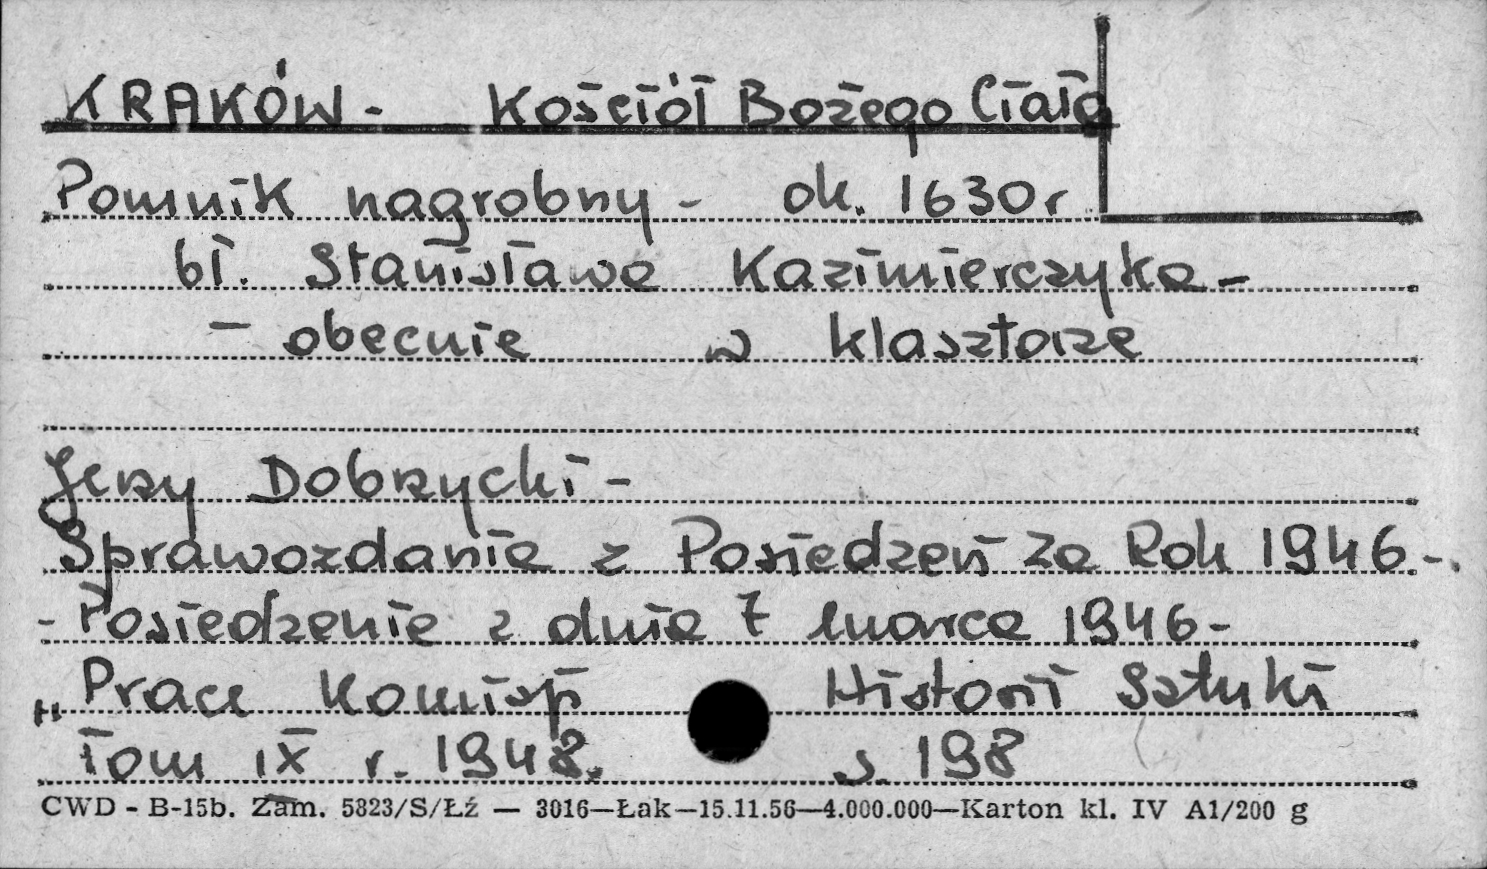 KRAKÓW - Kościół Bożego Ciała
Pomnik nagrobny - ok. 1630 r
bł. Stanisława Kazimierczyka -
- obecnie w klasztorze
Jerzy Dobrzycki -
Sprawozdanie z Posiedzeń za Rok 1946 -.
- Posiedzenie z dnia 7 marca 1946 -
„Prace Komisji Historii Sztuki
Tom IX r. 1948. s. 198
CWD - B-15b. Zam. 5823/S/Łź — 3016—Łak—15.11.56—4.000.000—Karton kl. IV A1/200 g